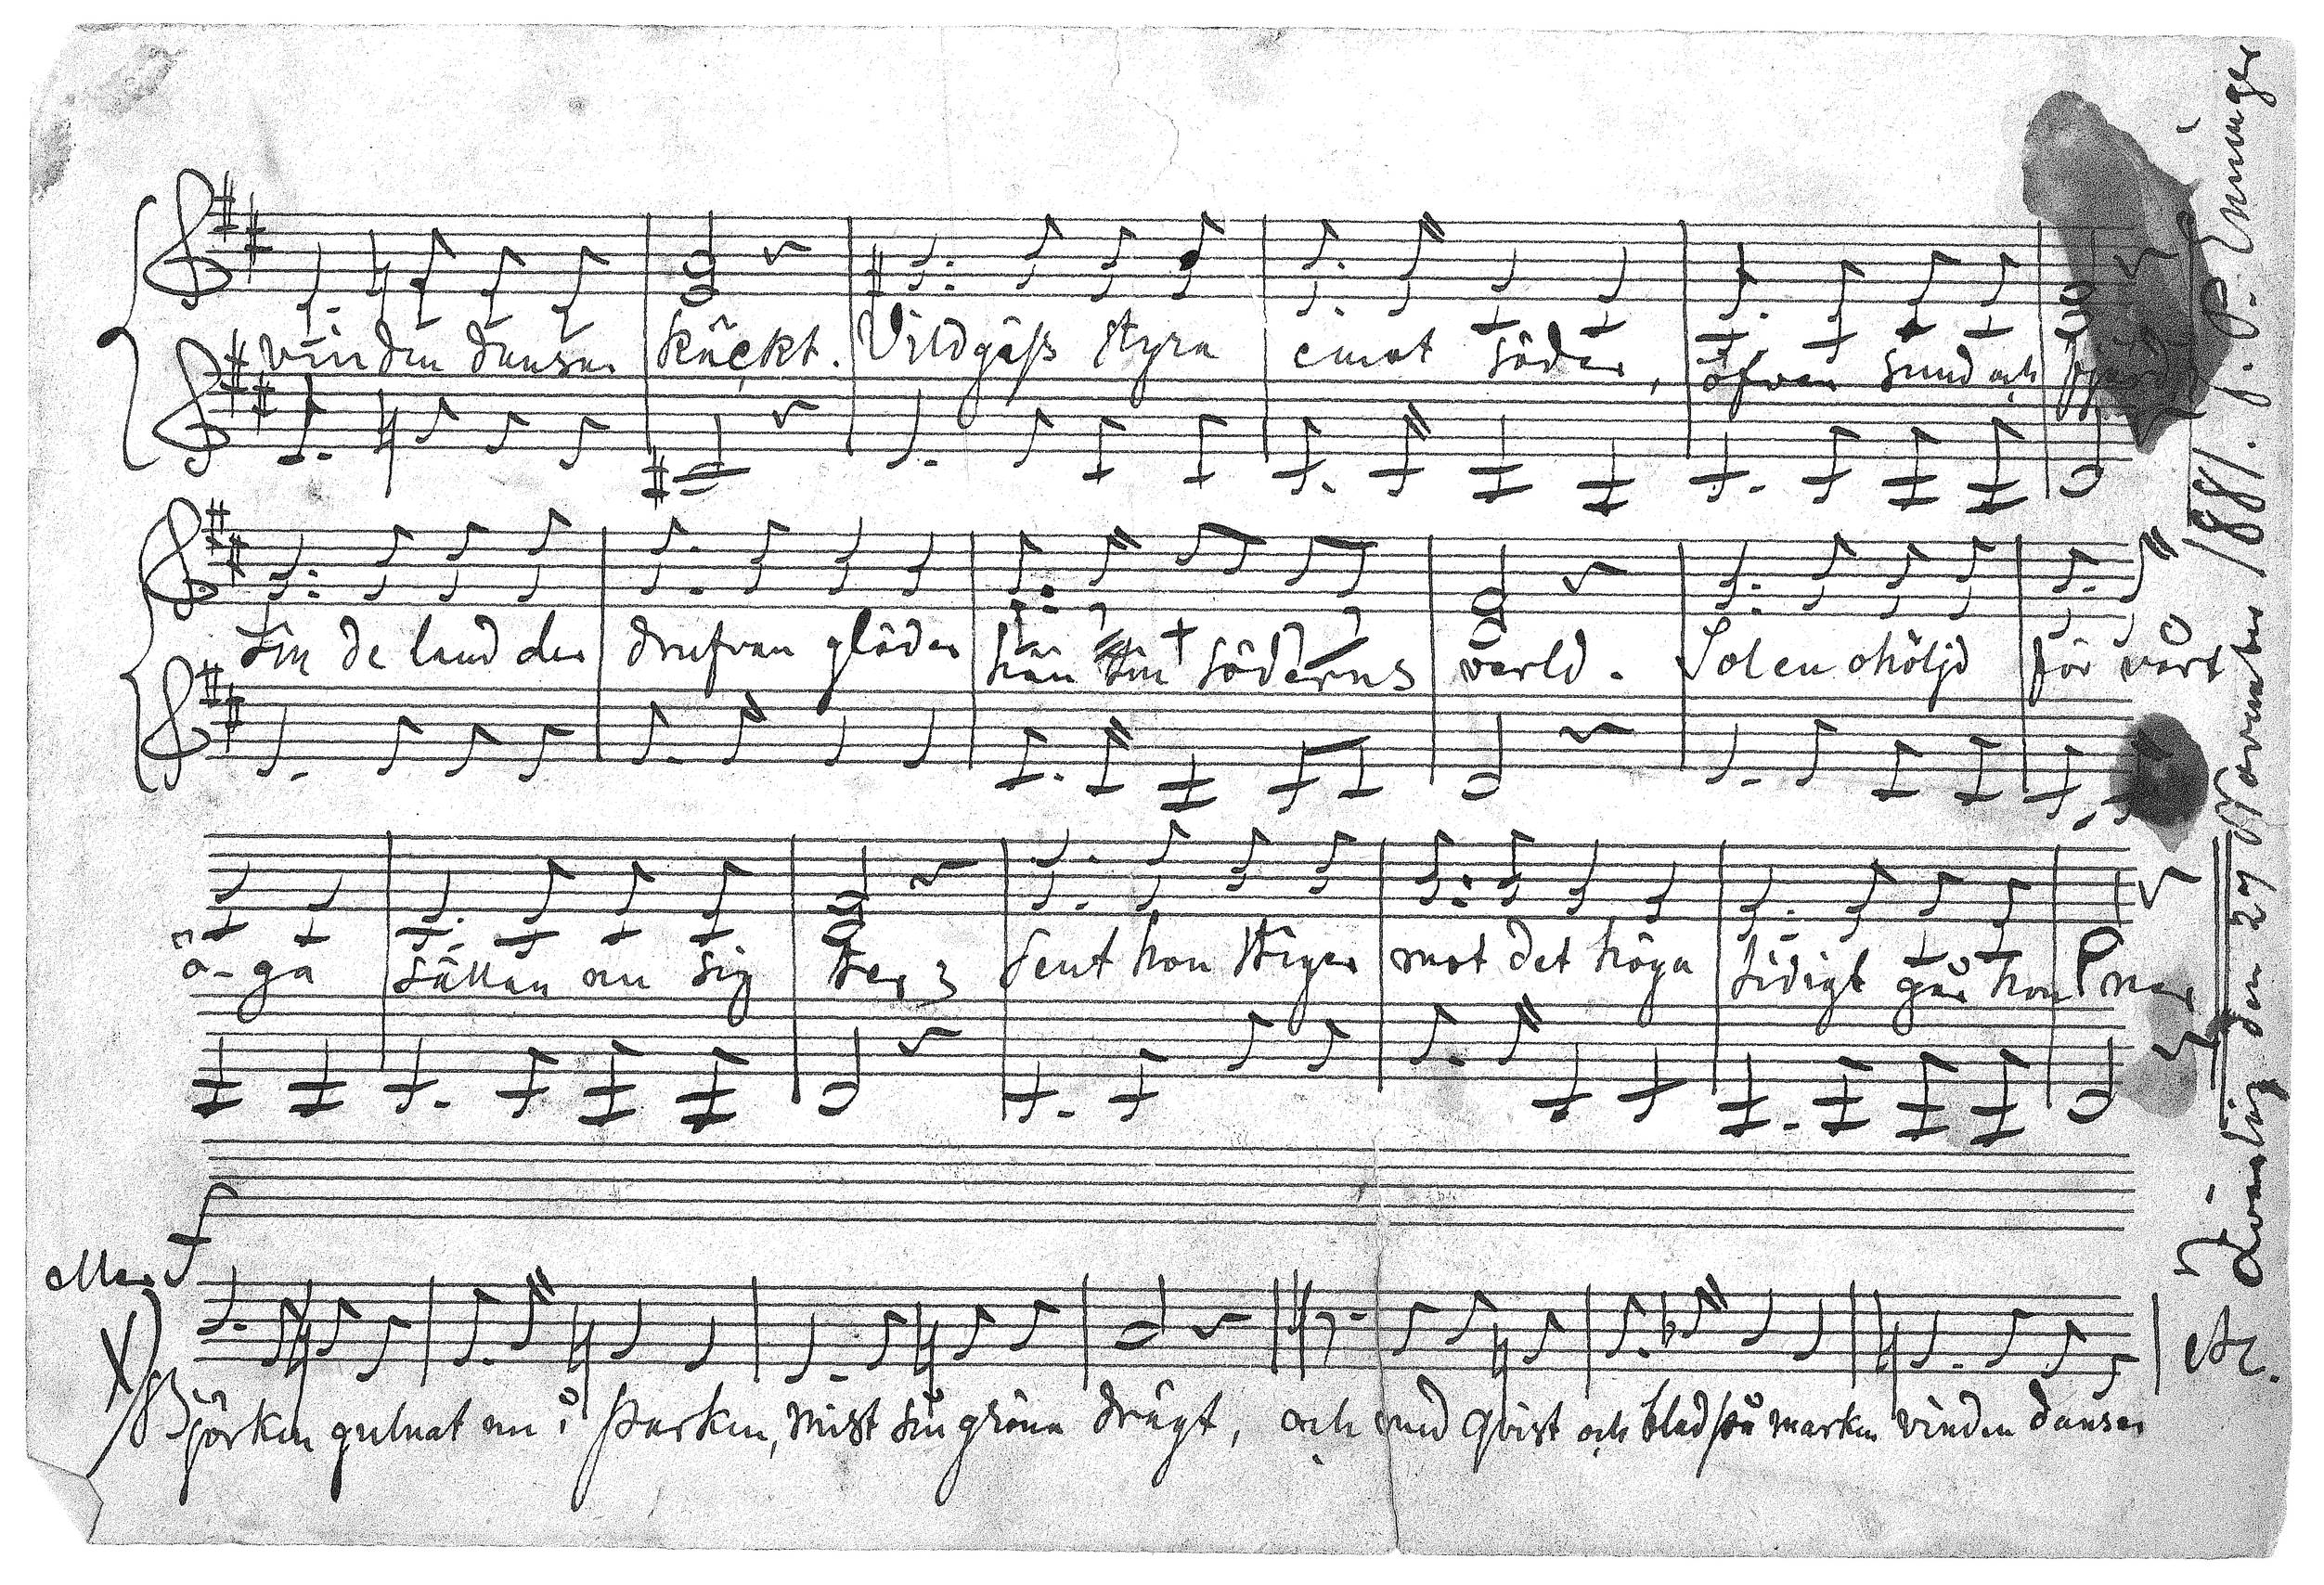 vin den dansar käckt. Vildgäss styra emot söder, öfver sund och fjärd
Lin de land der drufvan glöder hän sin söderns verld. Solen ohöljd för vårt
ö-ga sällan nu sig ter; Sent hon stiger mot det höga tidigt går hon ner
f
Björken gulnat nu i parken, mist sin gröna drägt, och med qvist och blad på marken vinden dansar
etc.
den 27 November 1881. J. P.